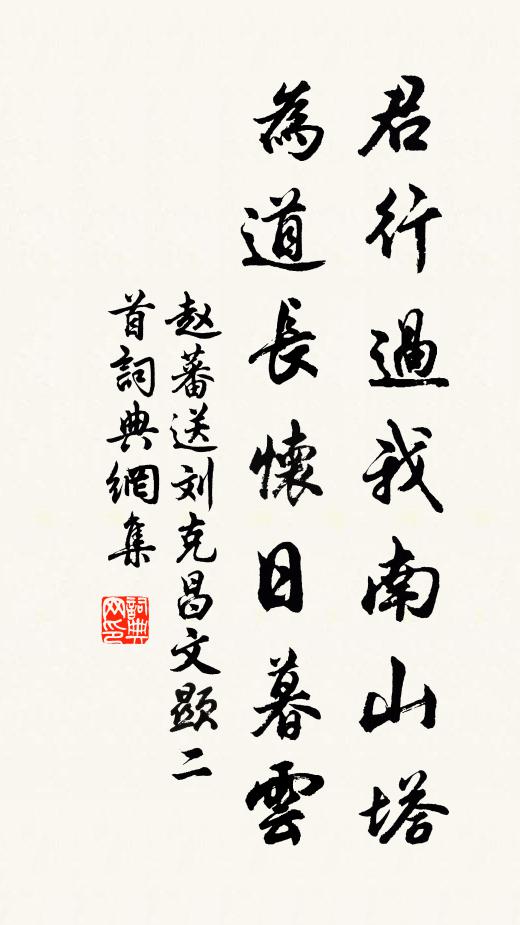 君行過我南山塔
為道長懷日暮雲
赵蕃送刘克昌文顯二
首詞典網集
詞典
网印